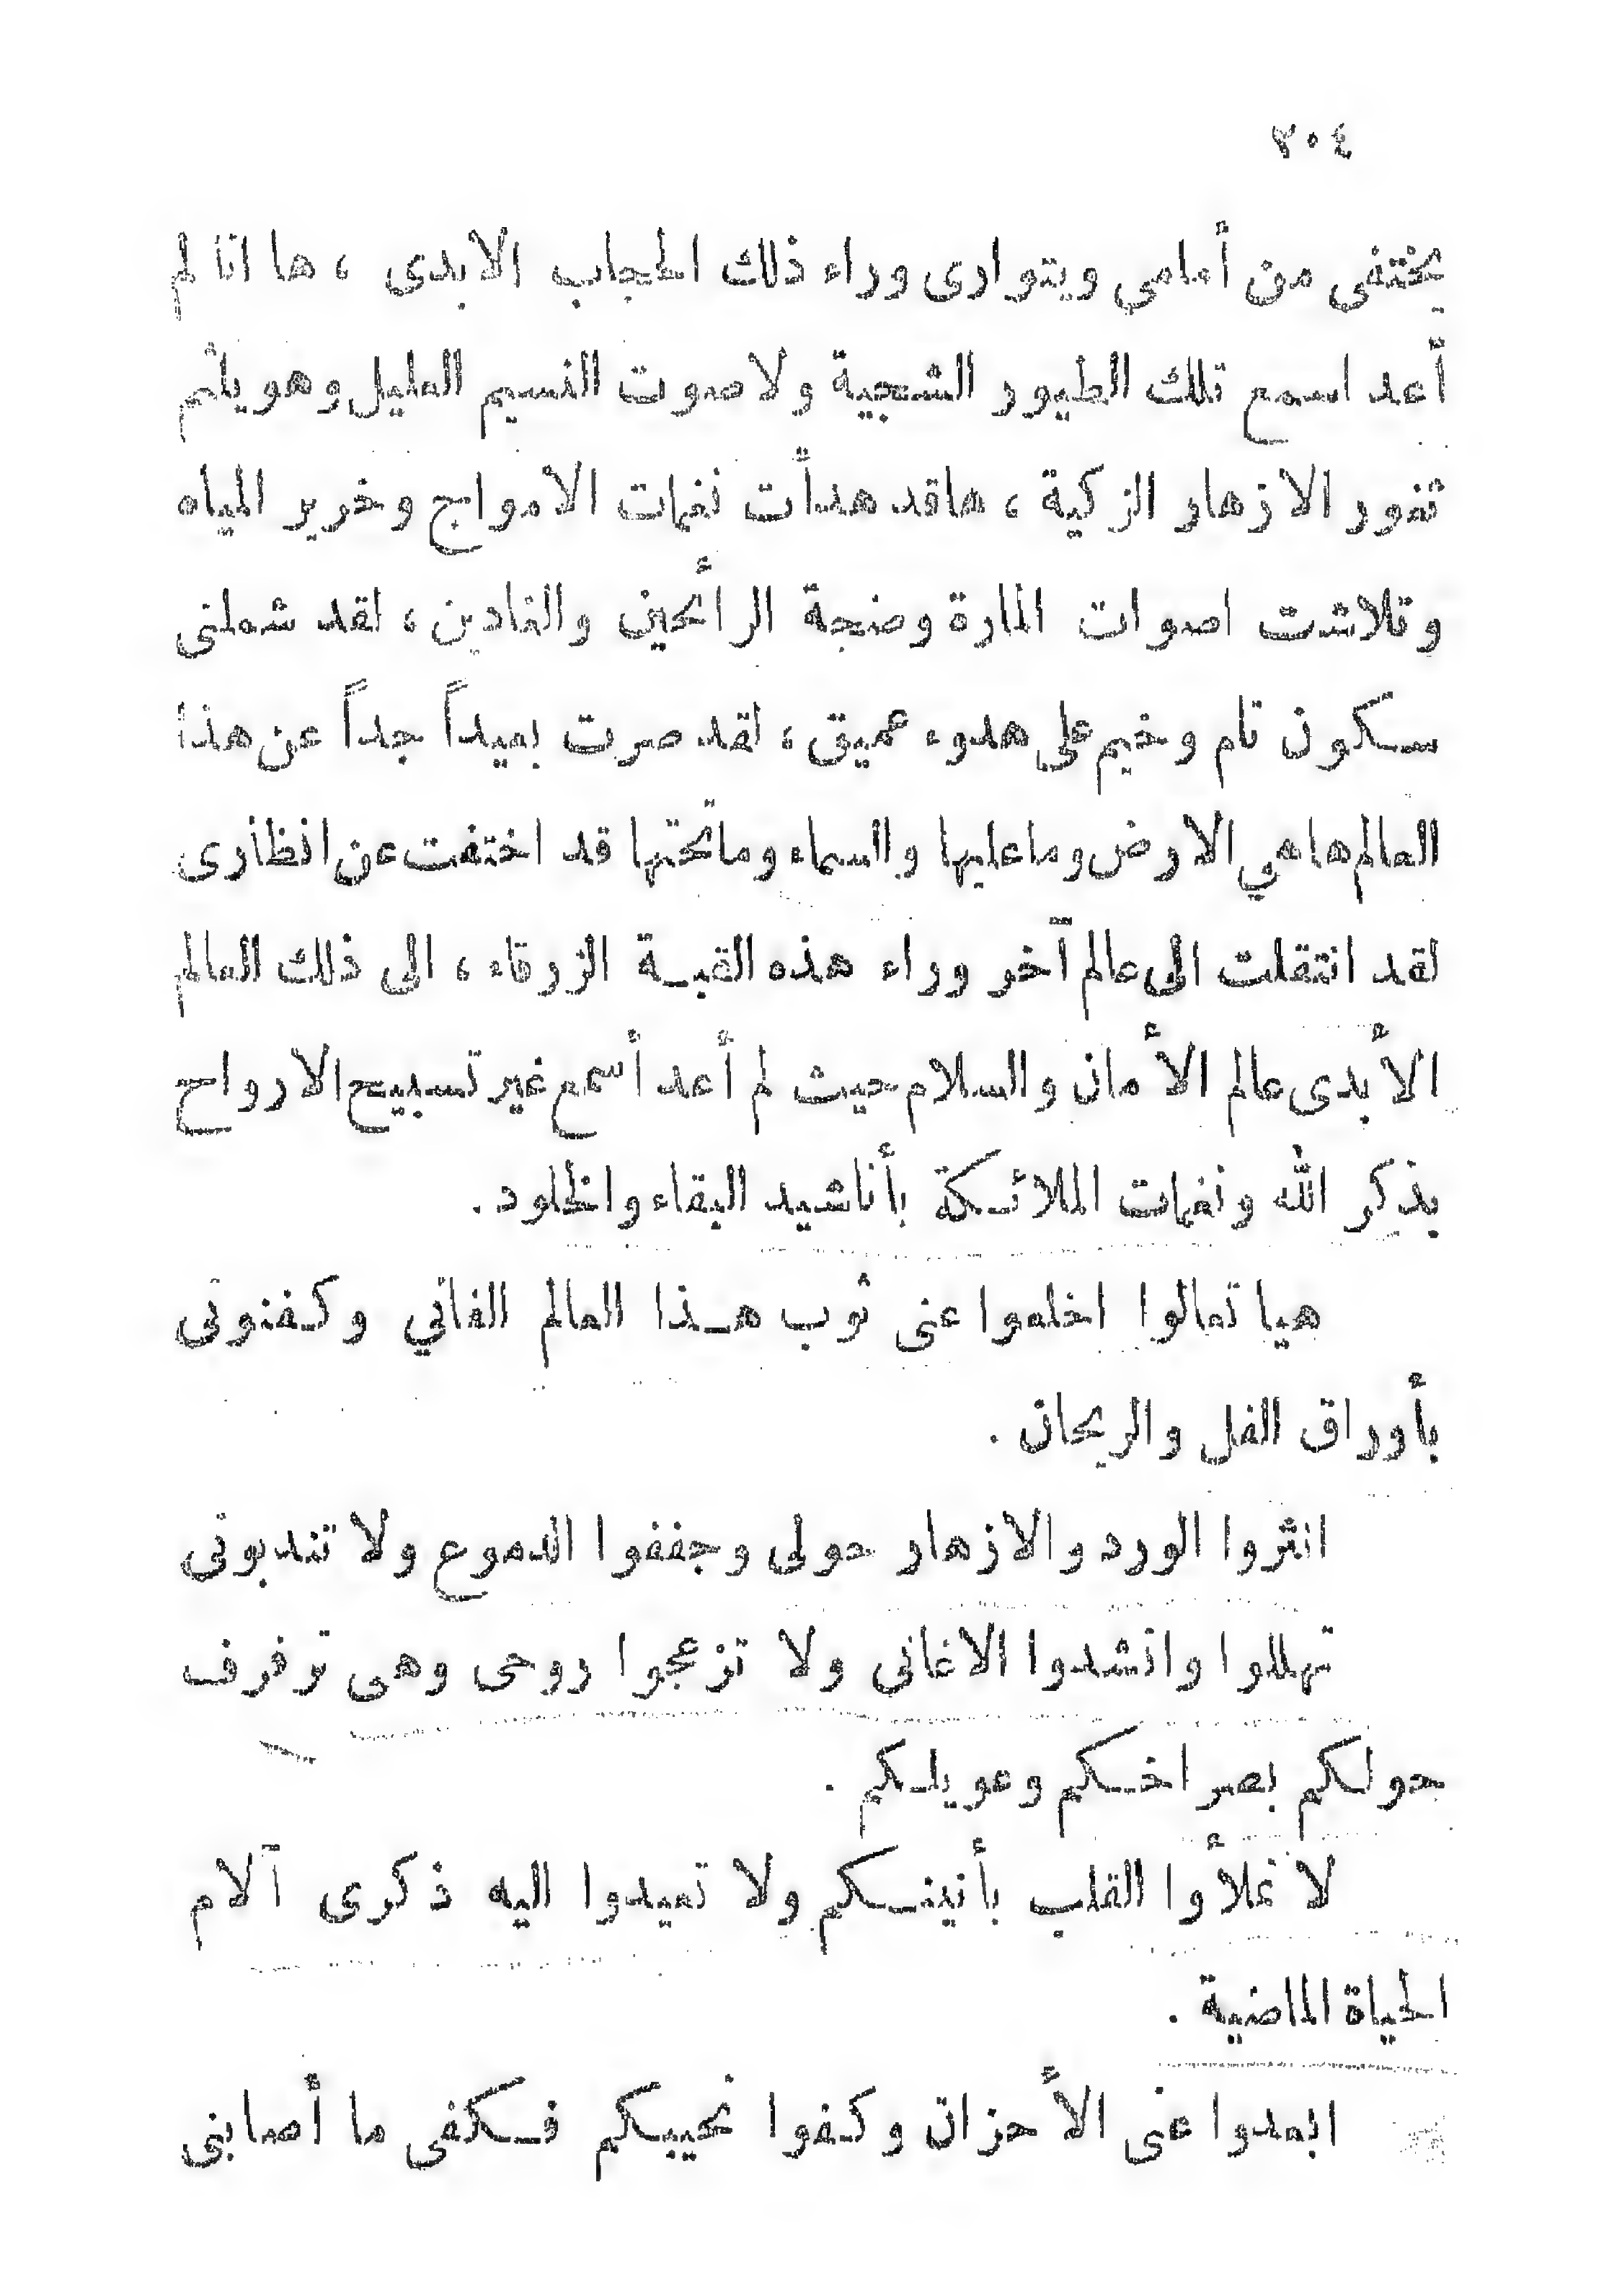 ٣٠٤
يختفى من أمامي ويتوارى وراء ذلك الحجاب الابدى ، ها انا لم
أعد اسمع تلك الطيور الشجية ولا صوت النسيم العليل وهو يلثم
ثغور الازهار الزكية ، هاقد هدأت نغمات الامواج وخرير المياه
وتلاشت اصوات المارة وضجة الرأئحين والغادين ، لقد شملنى
سكون تام وخيم على هدوء عميق ، لقد صرت بعيداً جداً عن هذا
العالم هاهي الارض وماعليها والسماء وماتحتها قد اختفت عن انظارى
لقد انتقلت الى عالم آخر وراء هذه القبة الزرقاء ، الى ذلك العالم
الأبدى عالم الأمان والسلام حيث لم أعد أسمع غير تسبيح الارواح
بذكر الله ونغمات الملائكة بأناشيد البقاء والخلود .
هيا تعالوا اخلعوا عنى ثوب هذا العالم الفاني وكفنونى
بأوراق الفل والريحان .
انثروا الورد والازهار حولى وجففوا الدموع ولا تندبونى
تهللوا وانشدوا الاغانى ولا تزعجوا روحى وهى ترفرف
حولكم بصراخكم وعويلكم .
لا تملأوا القلب بأنينكم ولا تعيدوا اليه ذكرى آلام
الحياة الماضية .
ابعدوا عنى الأحزان وكفوا نحيبكم فكفى ما أصابنى